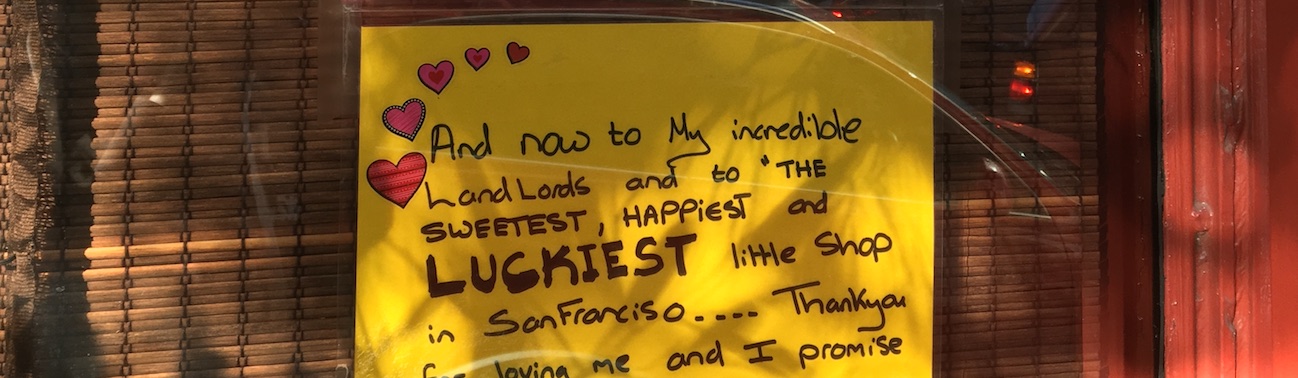 And now to My incredible
LandLords and to "THE
SWEETEST, HAPPiEST and
LUCKIEST little Shop
in SanFranciso.... Thankyou
for loving me and I promise